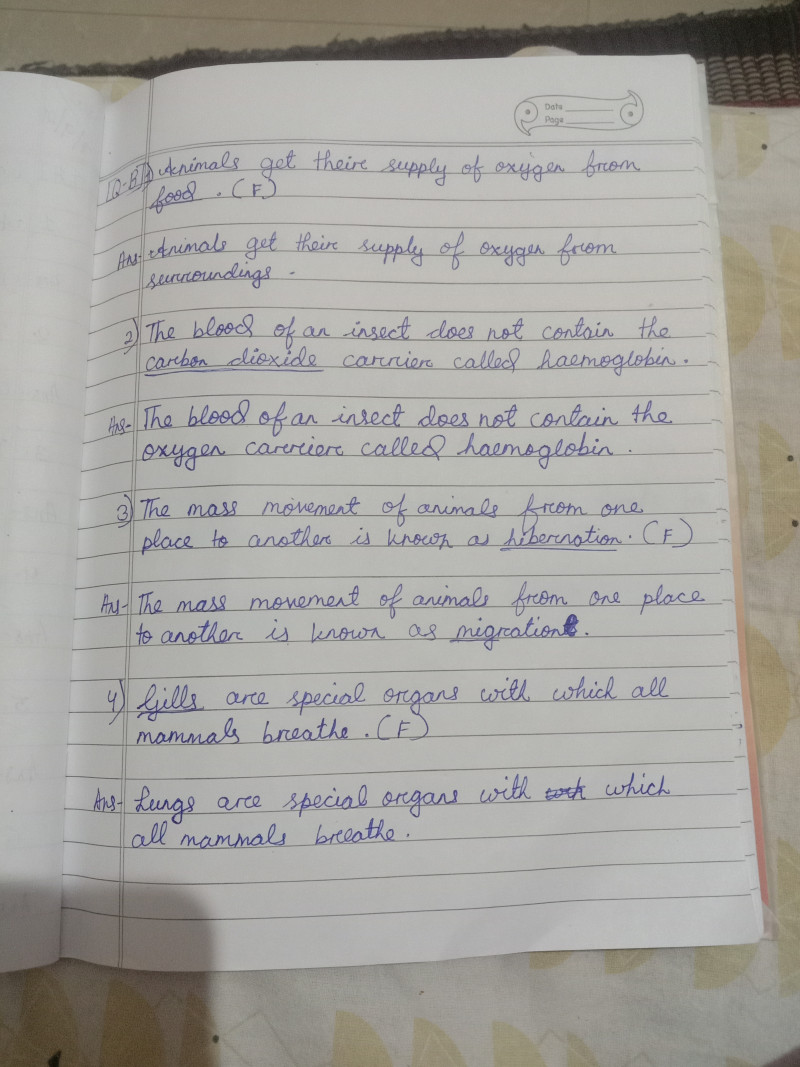 Date
Page
[Q-B] 1) Animals get their supply of oxygen from
food. (F)
Ans- Animals get their supply of oxygen from
surroundings.
2) The blood of an insect does not contain the
carbon dioxide carrier called haemoglobin.
Ans- The blood of an insect does not contain the
oxygen carrier called haemoglobin.
3) The mass movement of animals from one
place to another is known as hibernation. (F)
Ans- The mass movement of animals from one place
to another is known as migration.
4) Gills are special organs with which all
mammals breathe. (F)
Ans- Lungs are special organs with which
all mammals breathe.